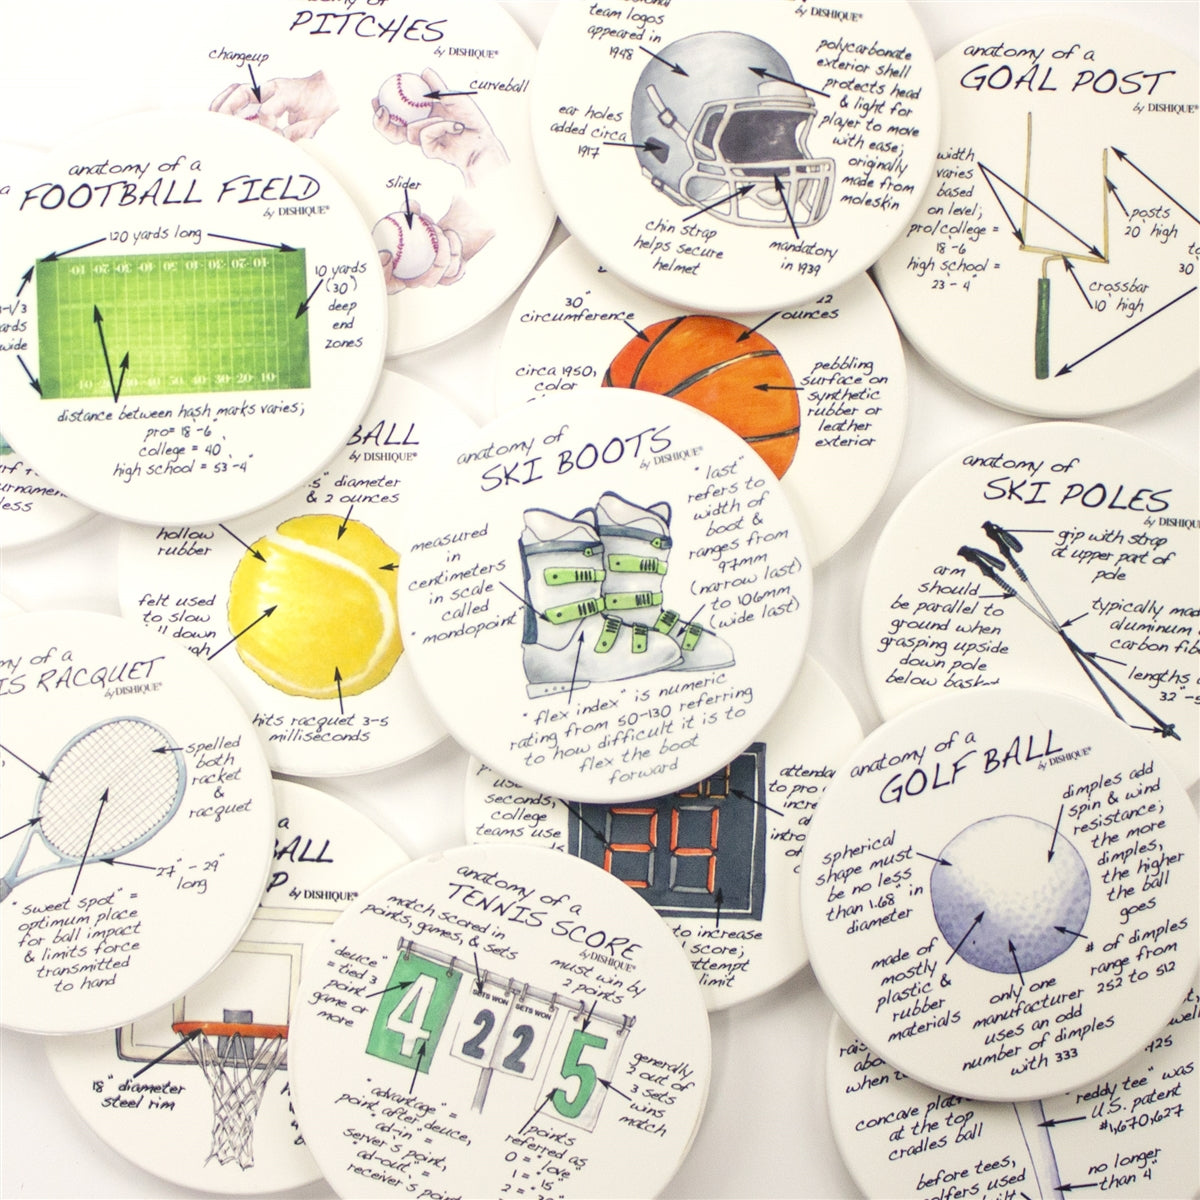 PITCHES
by DISHIQUE®
changeup
curveball
slider
team logos
appeared in
1948
by DISHIQUE®
polycarbonate
exterior shell
protects head
& light for
player to move
with ease;
originally
made from
moleskin
ear holes
added circa
1917
chin strap
helps secure
helmet
mandatory
in 1939
anatomy of a
GOAL POST
by DISHIQUE®
width
varies
based
on level;
pro/college =
18'-6"
high school =
23'-4"
posts
20' high
30'
crossbar
10' high
anatomy of a
FOOTBALL FIELD
by DISHIQUE®
120 yards long
10 yards
(30')
deep
end
zones
wide
distance between hash marks varies;
pro= 18'-6"
college = 40'
high school = 53'-4"
30"
circumference
ounces
circa 1950,
color
pebbling
surface on
synthetic
rubber or
leather
exterior
BALL
by DISHIQUE®
diameter
& 2 ounces
hollow
rubber
felt used
to slow
down
hits racquet 3-5
milliseconds
anatomy of
SKI BOOTS
by DISHIQUE®
"last"
refers to
width of
boot &
ranges from
97mm
(narrow last)
to 106mm
(wide last)
measured
in
centimeters
in scale
called
"mondopoint"
"flex index" is numeric
rating from 50-130 referring
to how difficult it is to
flex the boot
forward
anatomy of
SKI POLES
by DISHIQUE
grip with strap
at upper part of
pole
arm
should
be parallel to
ground when
grasping upside
down pole
below basket
typically made
aluminum
carbon
lengths
32"
of a
RACQUET
by DISHIQUE®
spelled
both
racket
&
racquet
27" - 29"
long
"sweet spot" =
optimum place
for ball impact
& limits force
transmitted
to hand
seconds,
college
teams use
24
to pro
to increase
score;
limit
anatomy of a
GOLF BALL
by DISHIQUE®
dimples add
spin & wind
resistance;
the more
dimples,
the higher
the ball
goes
spherical
shape must
be no less
than 1.68" in
diameter
made of
mostly
plastic &
rubber
materials
only one
manufacturer
uses an odd
number of dimples
with 333
# of dimples
range from
252 to 512
BALL
by DISHIQUE®
18" diameter
steel rim
anatomy of a
TENNIS SCORE
by DISHIQUE®
match scored in
points, games, & sets
"deuce"
= tied 3
point
game or
more
must win by
2 points
4
SETS WON
SETS WON
2 2
5
generally
2 out of
3 sets
wins
match
"advantage" =
point after deuce,
"ad-in" =
server's point,
"ad-out" =
receiver's point
points
referred as
0 = "love"
1 = "15"
when
concave
at the top
cradles ball
before tees,
golfers used
"reddy tee" was
U.S. patent
#1,670,627
no longer
than 4"